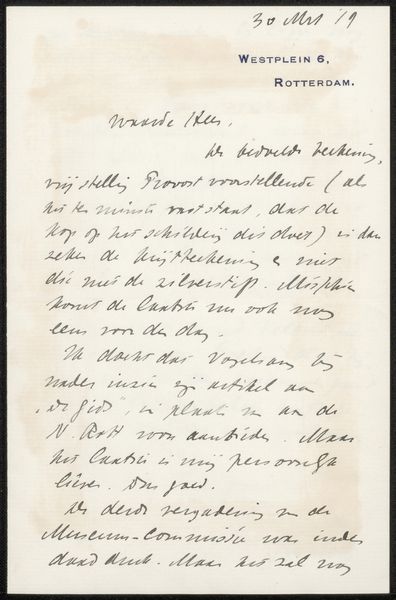 30 Mrt '19
WESTPLEIN 6,
ROTTERDAM.
Waarde Heer,
De bedoelde teekening,
vrij stellig Provost voorstellende (als
het ten minste vast staat, dat de
kop op het schilderij dit doet) is dan
zeker de krijtteekening en niet
die met de zilverstift. Misschien
komt de laatste nu ook nog
eens voor den dag.
Ik dacht dat Vogelsang bij
nader inzien zijn artikel aan
"de Gids", in plaats van aan de
N. Rott zou aanbieden. Maar
het laatste is mij persoonlijk
liever. Dus goed.
De derde vergadering van de
Museum-Commissie was inder
daad druk. Maar het zal nog